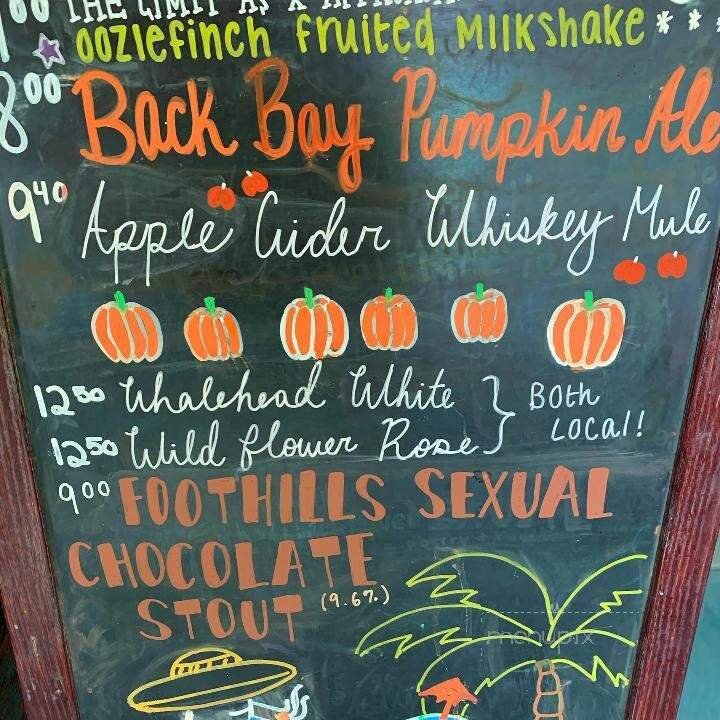 00 THE LIMIT AS X
oozlefinch fruited MIlkshake * * *
8.00 Back Bay Pumpkin Ale
9.40 Apple Cider Whiskey Mule
12.50 Whalehead White } Both
12.50 Wild flower Rose } Local!
9.00 FOOTHILLS SEXUAL
CHOCOLATE
STOUT (9.6%)
menupix